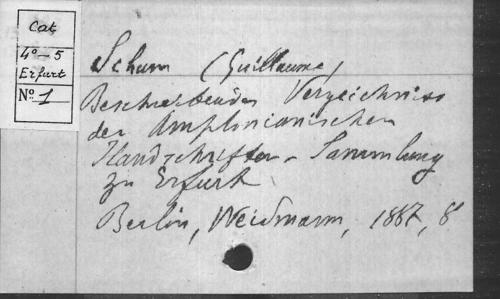 Cat
4° - 5
Erfurt
N° 1
Schum (Guillaume)
Beschreibendes Verzeichniss
der Amplonianischen
Handschriften-Sammlung
zu Erfurt
Berlin, Weidmann, 1887, 8°